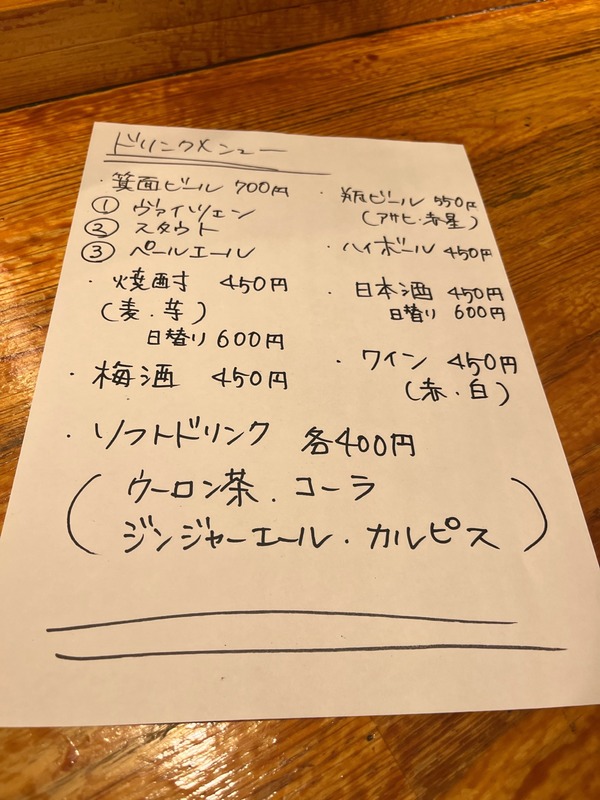 ドリンクメニュー
・箕面ビール 700円
① ヴァイツェン
② スタウト
③ ペールエール
・焼酎 450円
(麦・芋)
日替り 600円
・梅酒 450円
・瓶ビール 550円
(アサヒ・赤星)
・ハイボール 450円
・日本酒 450円
日替り 600円
・ワイン 450円
(赤・白)
・ソフトドリンク 各400円
(ウーロン茶・コーラ
ジンジャーエール・カルピス)